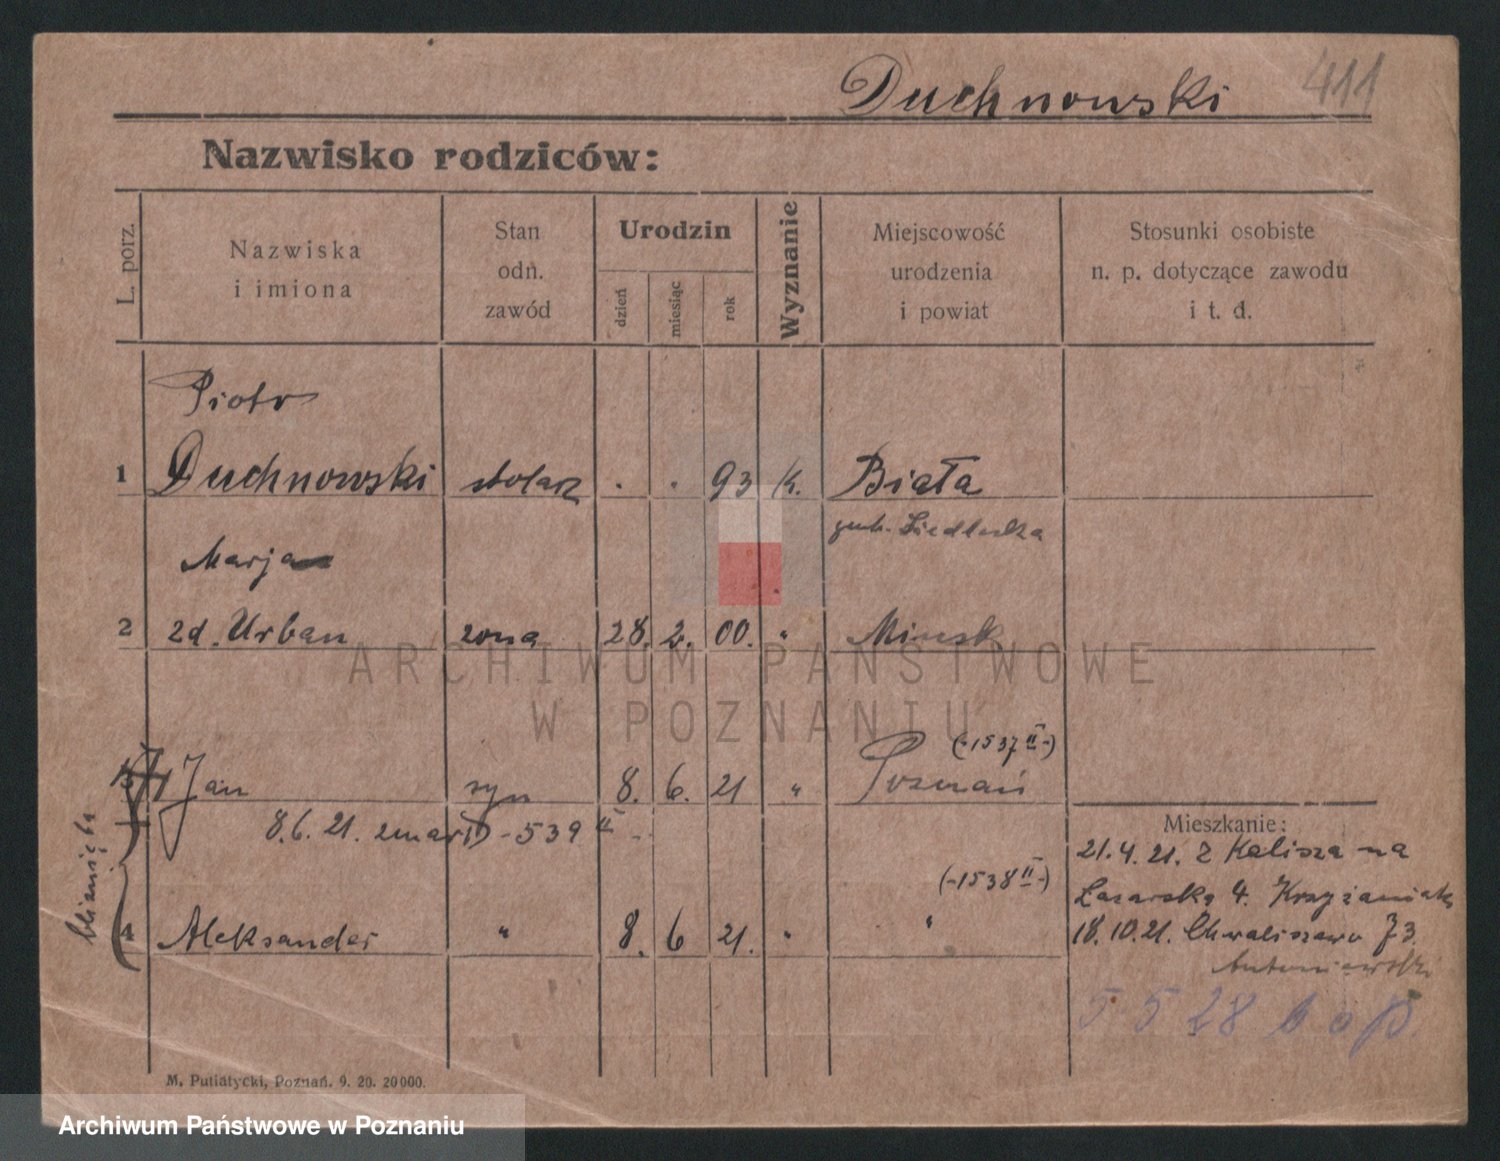 Duchnowski 411
Nazwisko rodziców:
L. porz.
Nazwiska
i imiona
Stan
odn.
zawód
Urodzin
dzień
miesiąc
rok
Wyznanie
Miejscowość
urodzenia
i powiat
Stosunki osobiste
n. p. dotyczące zawodu
i t. d.
Piotr
1 Duchnowski stolarz . . 93 k. Biała
gub. Siedlecka
Marja
2 zd. Urban żona 28. 2. 00. " Mińsk
(-1537 II-)
3 Jan syn 8. 6. 21 " Poznań
8.6.21. zmarł - 539 II -
bliźnięta
(-1538 II-)
4 Aleksander " 8. 6 21. " "
Mieszkanie:
21.4.21. z Kalisza na
Łazarska 4. Krzyżaniak
18.10.21. Chwaliszewo 73
Antoniewski
5 5 28
M. Putiatycki, Poznań. 9. 20. 20000.
ARCHIWUM PAŃSTWOWE
W POZNANIU
Archiwum Państwowe w Poznaniu